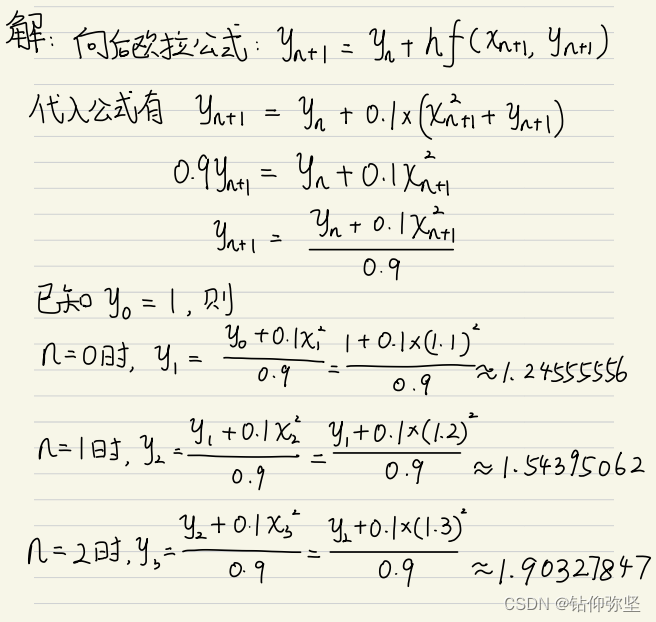 解: 向后欧拉公式: yₙ₊₁ = yₙ + hf(xₙ₊₁, yₙ₊₁)
代入公式有 yₙ₊₁ = yₙ + 0.1×(x²ₙ₊₁ + yₙ₊₁)
0.9yₙ₊₁ = yₙ + 0.1x²ₙ₊₁
yₙ₊₁ = (yₙ + 0.1x²ₙ₊₁)/0.9
已知 y₀ = 1, 则
n=0时, y₁ = (y₀ + 0.1x₁²)/0.9 = (1 + 0.1×(1.1)²)/0.9 ≈ 1.24555556
n=1时, y₂ = (y₁ + 0.1x₂²)/0.9 = (y₁ + 0.1×(1.2)²)/0.9 ≈ 1.54395062
n=2时, y₃ = (y₂ + 0.1x₃²)/0.9 = (y₂ + 0.1×(1.3)²)/0.9 ≈ 1.90327847
CSDN @钻仰弥坚